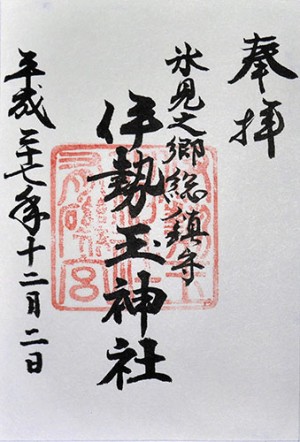 奉拝
氷見之郷総鎮守
伊勢玉神社
平成二十七年十二月二日